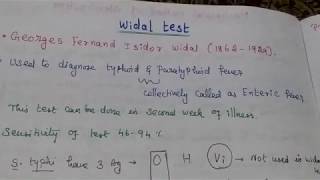 Widal test
• Georges Fernand Isidor Widal (1862-1929).
• Used to diagnose typhoid & Paratyphoid fever
collectively called as Enteric fever
This test can be done in second week of illness.
Sensitivity of test 46-94%
S. typhi have 3 Ag → O H Vi → Not used in wida